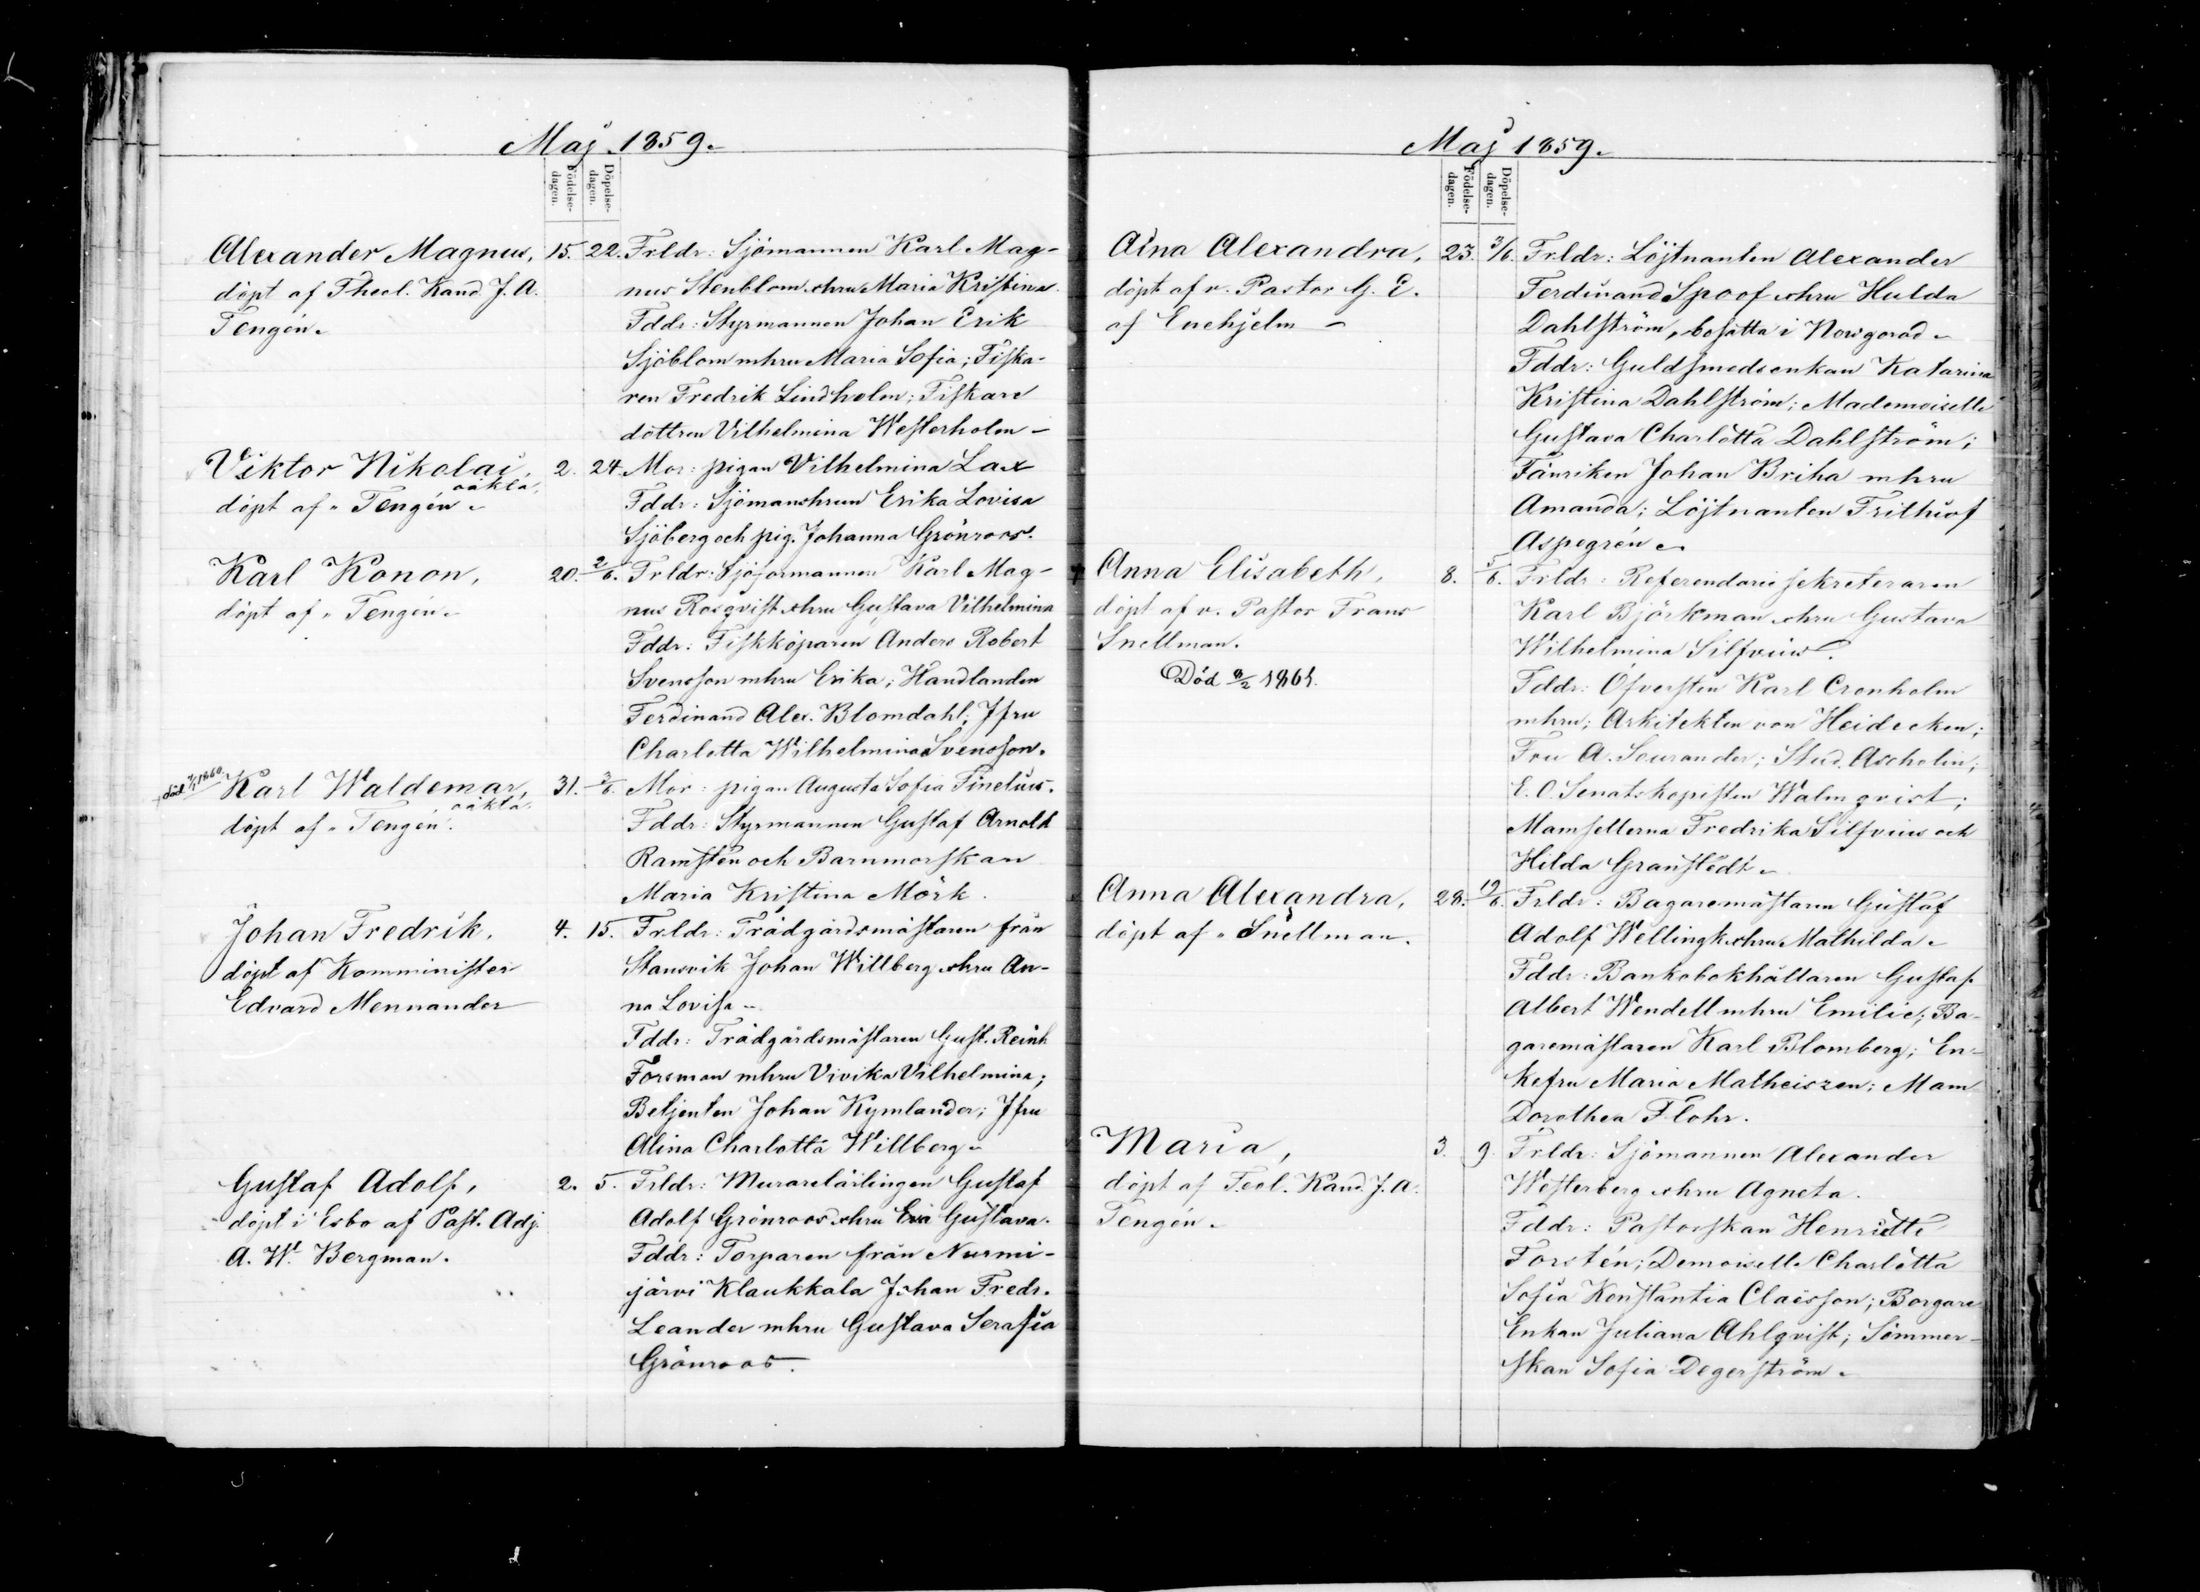 Maj 1859.
Födelse-dagen.
Döpelse-dagen.
Alexander Magnus, 15. 22. Frldr: Sjömannen Karl Mag-
döpt af Theol. Kand. J. A. nus Stenblom o hru Maria Kristina
Tengén. Fddr: Styrmannen Johan Erik
Sjöblom m hru Maria Sofia; Fiska-
ren Fredrik Lindholm; Fiskare
dottren Vilhelmina Westerholm –
Viktor Nikolai, 2. 24. Mor: pigan Vilhelmina Lax
oäkta,
döpt af " Tengén. Fddr: Sjömanshrun Erika Lovisa
Sjöberg och pig. Johanna Grönroos.
Karl Konon, 20. 2/6. Frldr: Sjöformannen Karl Mag-
döpt af " Tengén. nus Rosqvist o hru Gustava Vilhelmina
Fddr: Fiskköparen Anders Robert
Svensson m hru Erika; Handlanden
Ferdinand Alex. Blomdahl; Jfru
Charlotta Wilhelmina Svensson.
död 1860. Karl Waldemar, 31. 3/6. Mor: pigan Augusta Sofia Finelius.
oäkta.
döpt af " Tengén. Fddr: Styrmannen Gustaf Arnold
Ramstén och Barnmorskan
Maria Kristina Mörk.
Johan Fredrik, 4. 15. Frldr: Trädgårdsmästaren från
döpt af Komminister Stansvik Johan Willberg o hru An-
Edvard Mennander na Lovisa.
Fddr: Trädgårdsmästaren Gust. Reinh
Forsman m hru Vivika Vilhelmina;
Betjenten Johan Kymlander; Jfru
Alina Charlotta Willberg.
Gustaf Adolf, 2. 5. Frldr: Murarelärlingen Gustaf
döpt i Esbo af Past. Adj. Adolf Grönroos o hru Eva Gustava.
A. W. Bergman. Fddr: Torparen från Nurmi-
järvi Klaukkala Johan Fredr.
Leander m hru Gustava Serafia
Grönroos.
Maj 1859.
Födelse-dagen.
Döpelse-dagen.
Aina Alexandra, 23. 3/6. Frldr: Löjtnanten Alexander
döpt af v. Pastor G. E. Ferdinand Spoof o hru Hulda
af Enehjelm – Dahlström, bosatta i Nowgorod.
Fddr: Guldsmedsenkan Katarina
Kristina Dahlström; Mademoiselle
Gustava Charlotta Dahlström;
Fänriken Johan Briha m hru
Amanda; Löjtnanten Frithiof
Aspegrén.
Anna Elisabeth, 8. 5/6. Frldr: Referendariesekreteraren
döpt af v. Pastor Frans Karl Björkman o hru Gustava
Snellman. Wilhelmina Silfvius.
Död 1861. Fddr: Öfversten Karl Cronholm
m hru; Arkitekten von Heidecken;
Fru A. Seurander; Stud. Ascholin;
E. O. Senatskopisten Walmqvist;
Mamsellerna Fredrika Silfvius och
Hilda Granstedt.
Anna Alexandra, 28. 19/6. Frldr: Bagaremästaren Gustaf
döpt af " Snellman. Adolf Wellingk o hru Mathilda.
Fddr: Bankobokhållaren Gustaf
Albert Wendell m hru Emilie; Ba-
garemästaren Karl Blomberg; En-
kefru Maria Matheiszen; Mam
Dorothea Flohr.
Maria, 3. 9. Frldr: Sjömannen Alexander
döpt af Teol. Kand. J. A. Westerberg o hru Agneta.
Tengén. Fddr: Pastorskan Henriette
Forstén; Demoiselle Charlotta
Sofia Konstantia Claësson; Borgare
Enkan Juliana Ahlqvist; Sömmer-
skan Sofia Degerström.